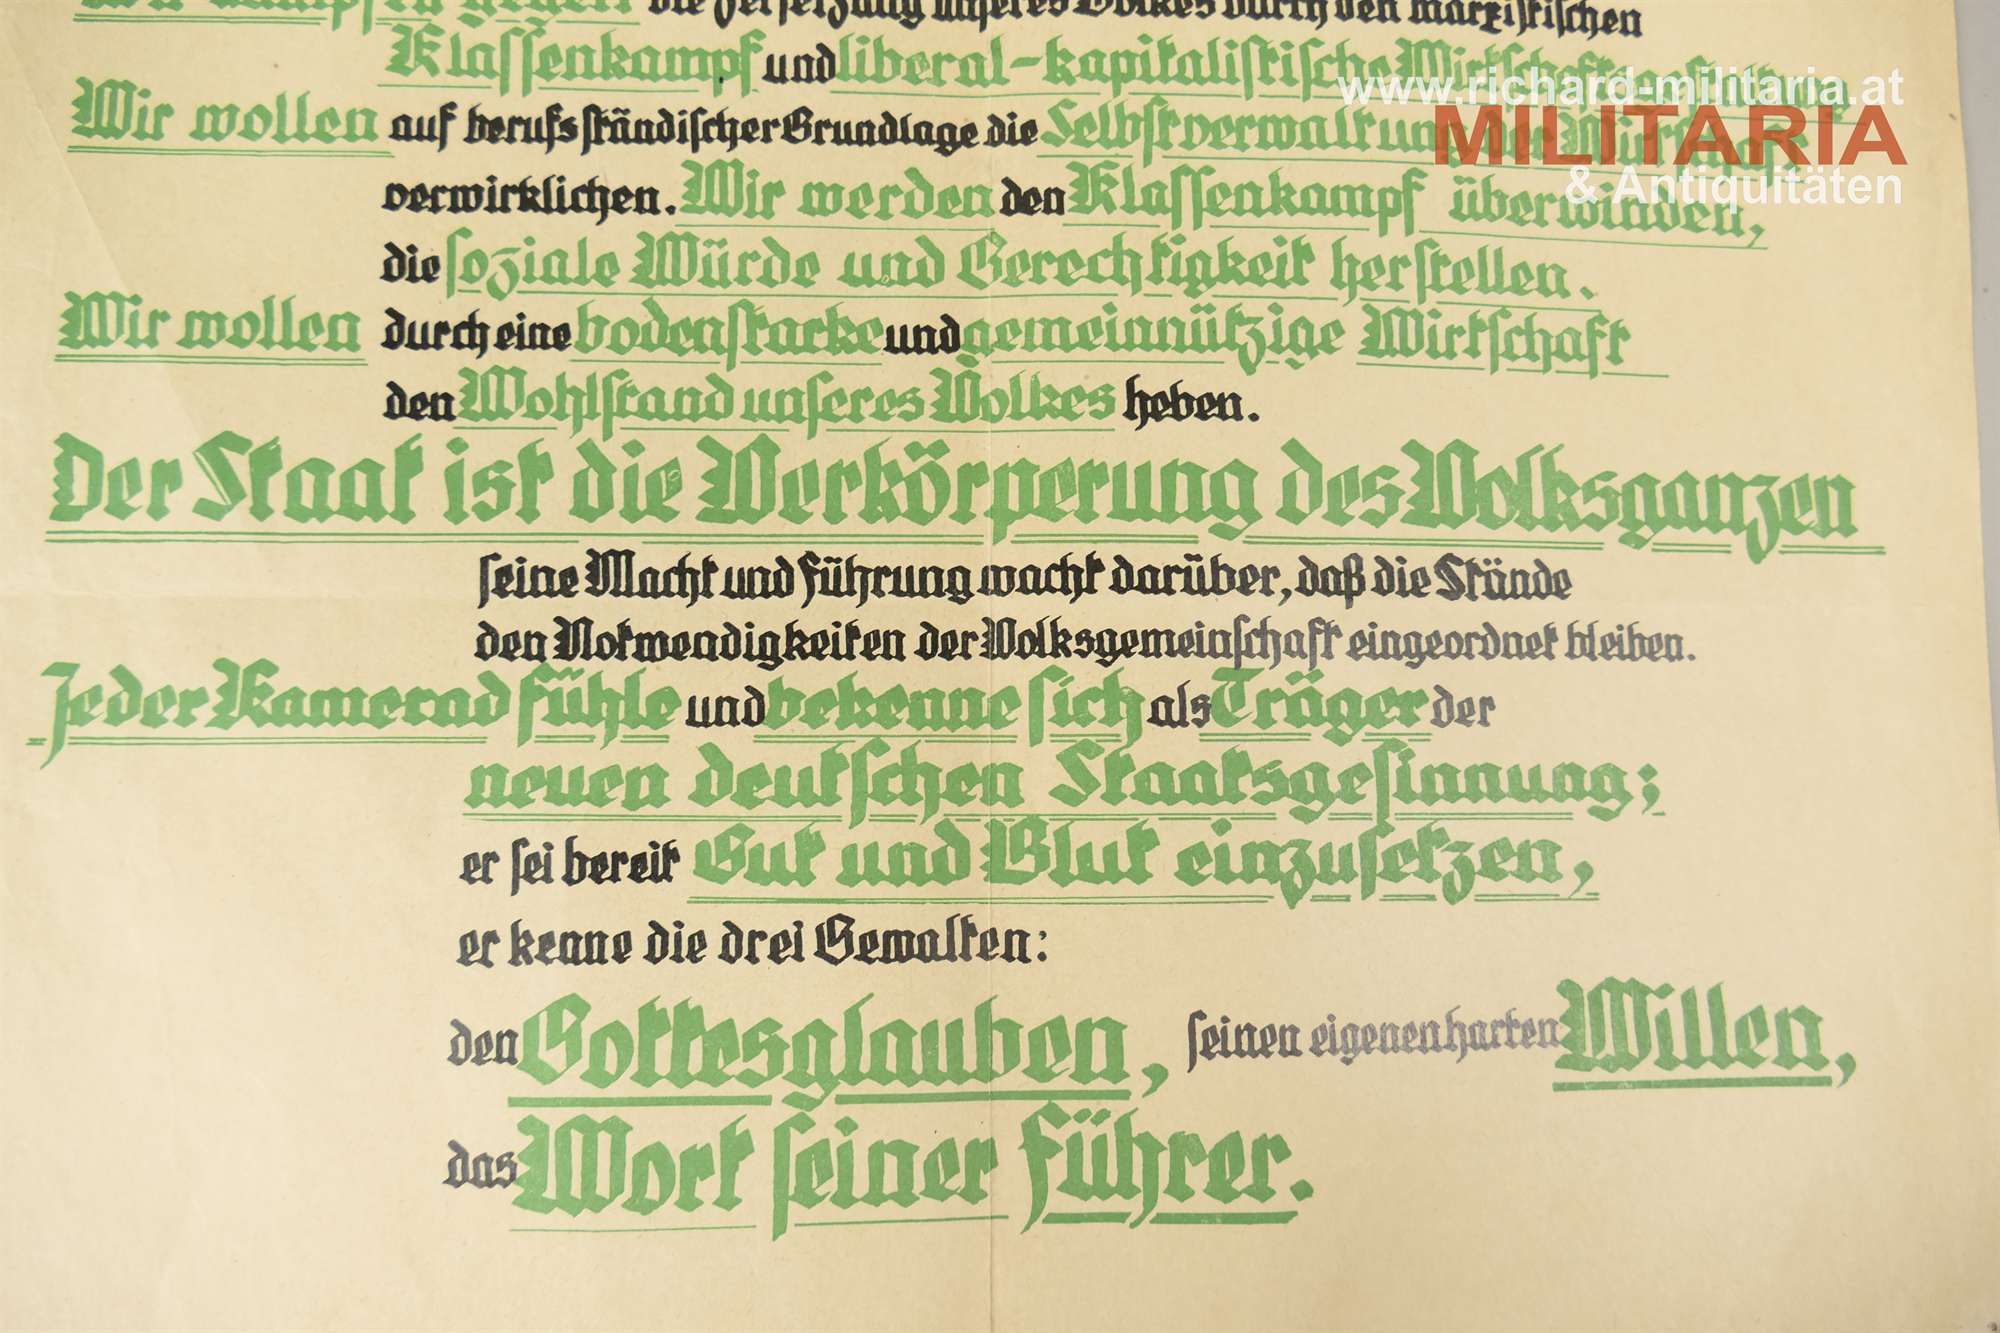 Wir kämpfen gegen die Zersetzung unseres Volkes durch den marxistischen
Klassenkampf und liberal-kapitalistische Wirtschaftsgestaltung
www.richard-militaria.at
MILITARIA
& Antiquitäten
Wir wollen auf berufsständischer Grundlage die Selbstverwaltung der Wirtschaft
verwirklichen. Wir werden den Klassenkampf überwinden,
die soziale Würde und Gerechtigkeit herstellen.
Wir wollen durch eine bodenstarke und gemeinnützige Wirtschaft
den Wohlstand unseres Volkes heben.
Der Staat ist die Verkörperung des Volksganzen
seine Macht und Führung wacht darüber, daß die Stände
den Notwendigkeiten der Volksgemeinschaft eingeordnet bleiben.
Jeder Kamerad fühle und bekenne sich als Träger der
neuen deutschen Staatsgesinnung;
er sei bereit Gut und Blut einzusetzen,
er kenne die drei Gewalten:
den Gottesglauben, seinen eigenen harten Willen,
das Wort seiner Führer.